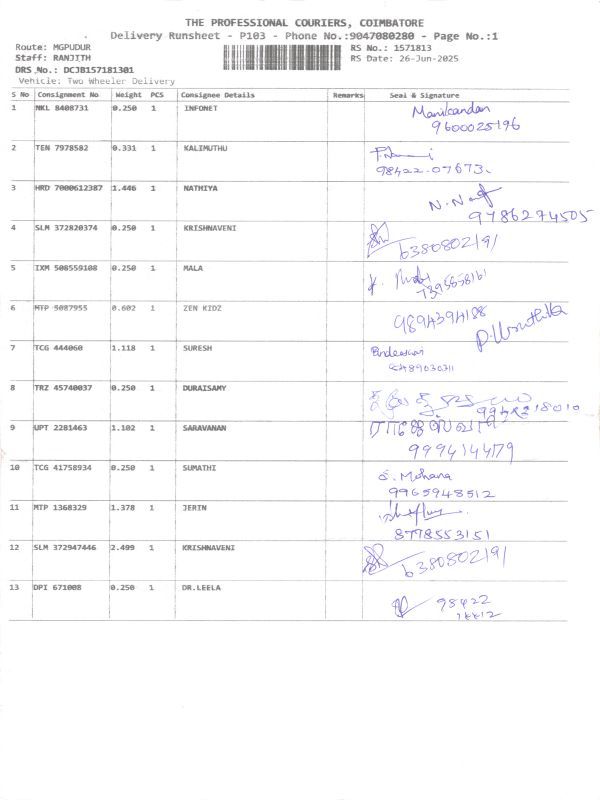 THE PROFESSIONAL COURIERS, COIMBATORE
Delivery Runsheet - P103 - Phone No.:9047080280 - Page No.:1
Route: MGPUDUR RS No.: 1571813
Staff: RANJITH RS Date: 26-Jun-2025
DRS No.: DCJB157181301
Vehicle: Two Wheeler Delivery
S No Consignment No Weight PCS Consignee Details Remarks Seal & Signature
1 NKL 8408731 0.250 1 INFONET Manikandan
9600025196
2 TEN 7978582 0.331 1 KALIMUTHU
98422-07673.
3 HRD 7000612387 1.446 1 NATHIYA
9786274505
4 SLM 372820374 0.250 1 KRISHNAVENI
6380802191
5 IXM 508559108 0.250 1 MALA
6 MTP 5087955 0.602 1 ZEN KIDZ 9894394188
7 TCG 444060 1.118 1 SURESH
8489030311
8 TRZ 45740037 0.250 1 DURAISAMY
9 UPT 2281463 1.102 1 SARAVANAN
9994144179
10 TCG 41758934 0.250 1 SUMATHI S. Mohana
9965948512
11 MTP 1368329 1.378 1 JERIN
8778553151
12 SLM 372947446 2.499 1 KRISHNAVENI
6380802191
13 DPI 671008 0.250 1 DR.LEELA 98422